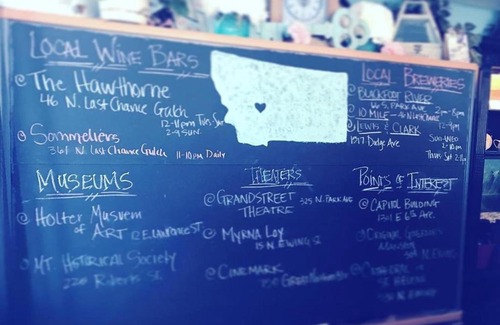 LOCAL WINE BARS
@ The Hawthorne
46 N. Last Chance Gulch
12-11pm Tues-Sat
2-9 SUN.
@ Sommeliers
361 N. Last Chance Gulch 11-10pm Daily
LOCAL BREWERIES
@ BLACKFOOT RIVER
66 S. PARK AVE 2pm-8pm
@ 10 MILE
@ LEWIS & CLARK
1517 Dodge Ave
MUSEUMS
@ Holter Museum
of ART 12 E. LAWRENCE ST
MT. HISTORICAL SOCIETY
225 Roberts St.
THEATERS
@ GRANDSTREET 325 N. PARK AVE
THEATRE
@ MYRNA LOY
15 N. EWING ST
@ CINEMARK
POINTS OF INTEREST
@ CAPITOL BUILDING
1301 E 6th Ave.
@ ORIGINAL GOVERNOR'S
@ CATHEDRAL OF
ST. HELENA